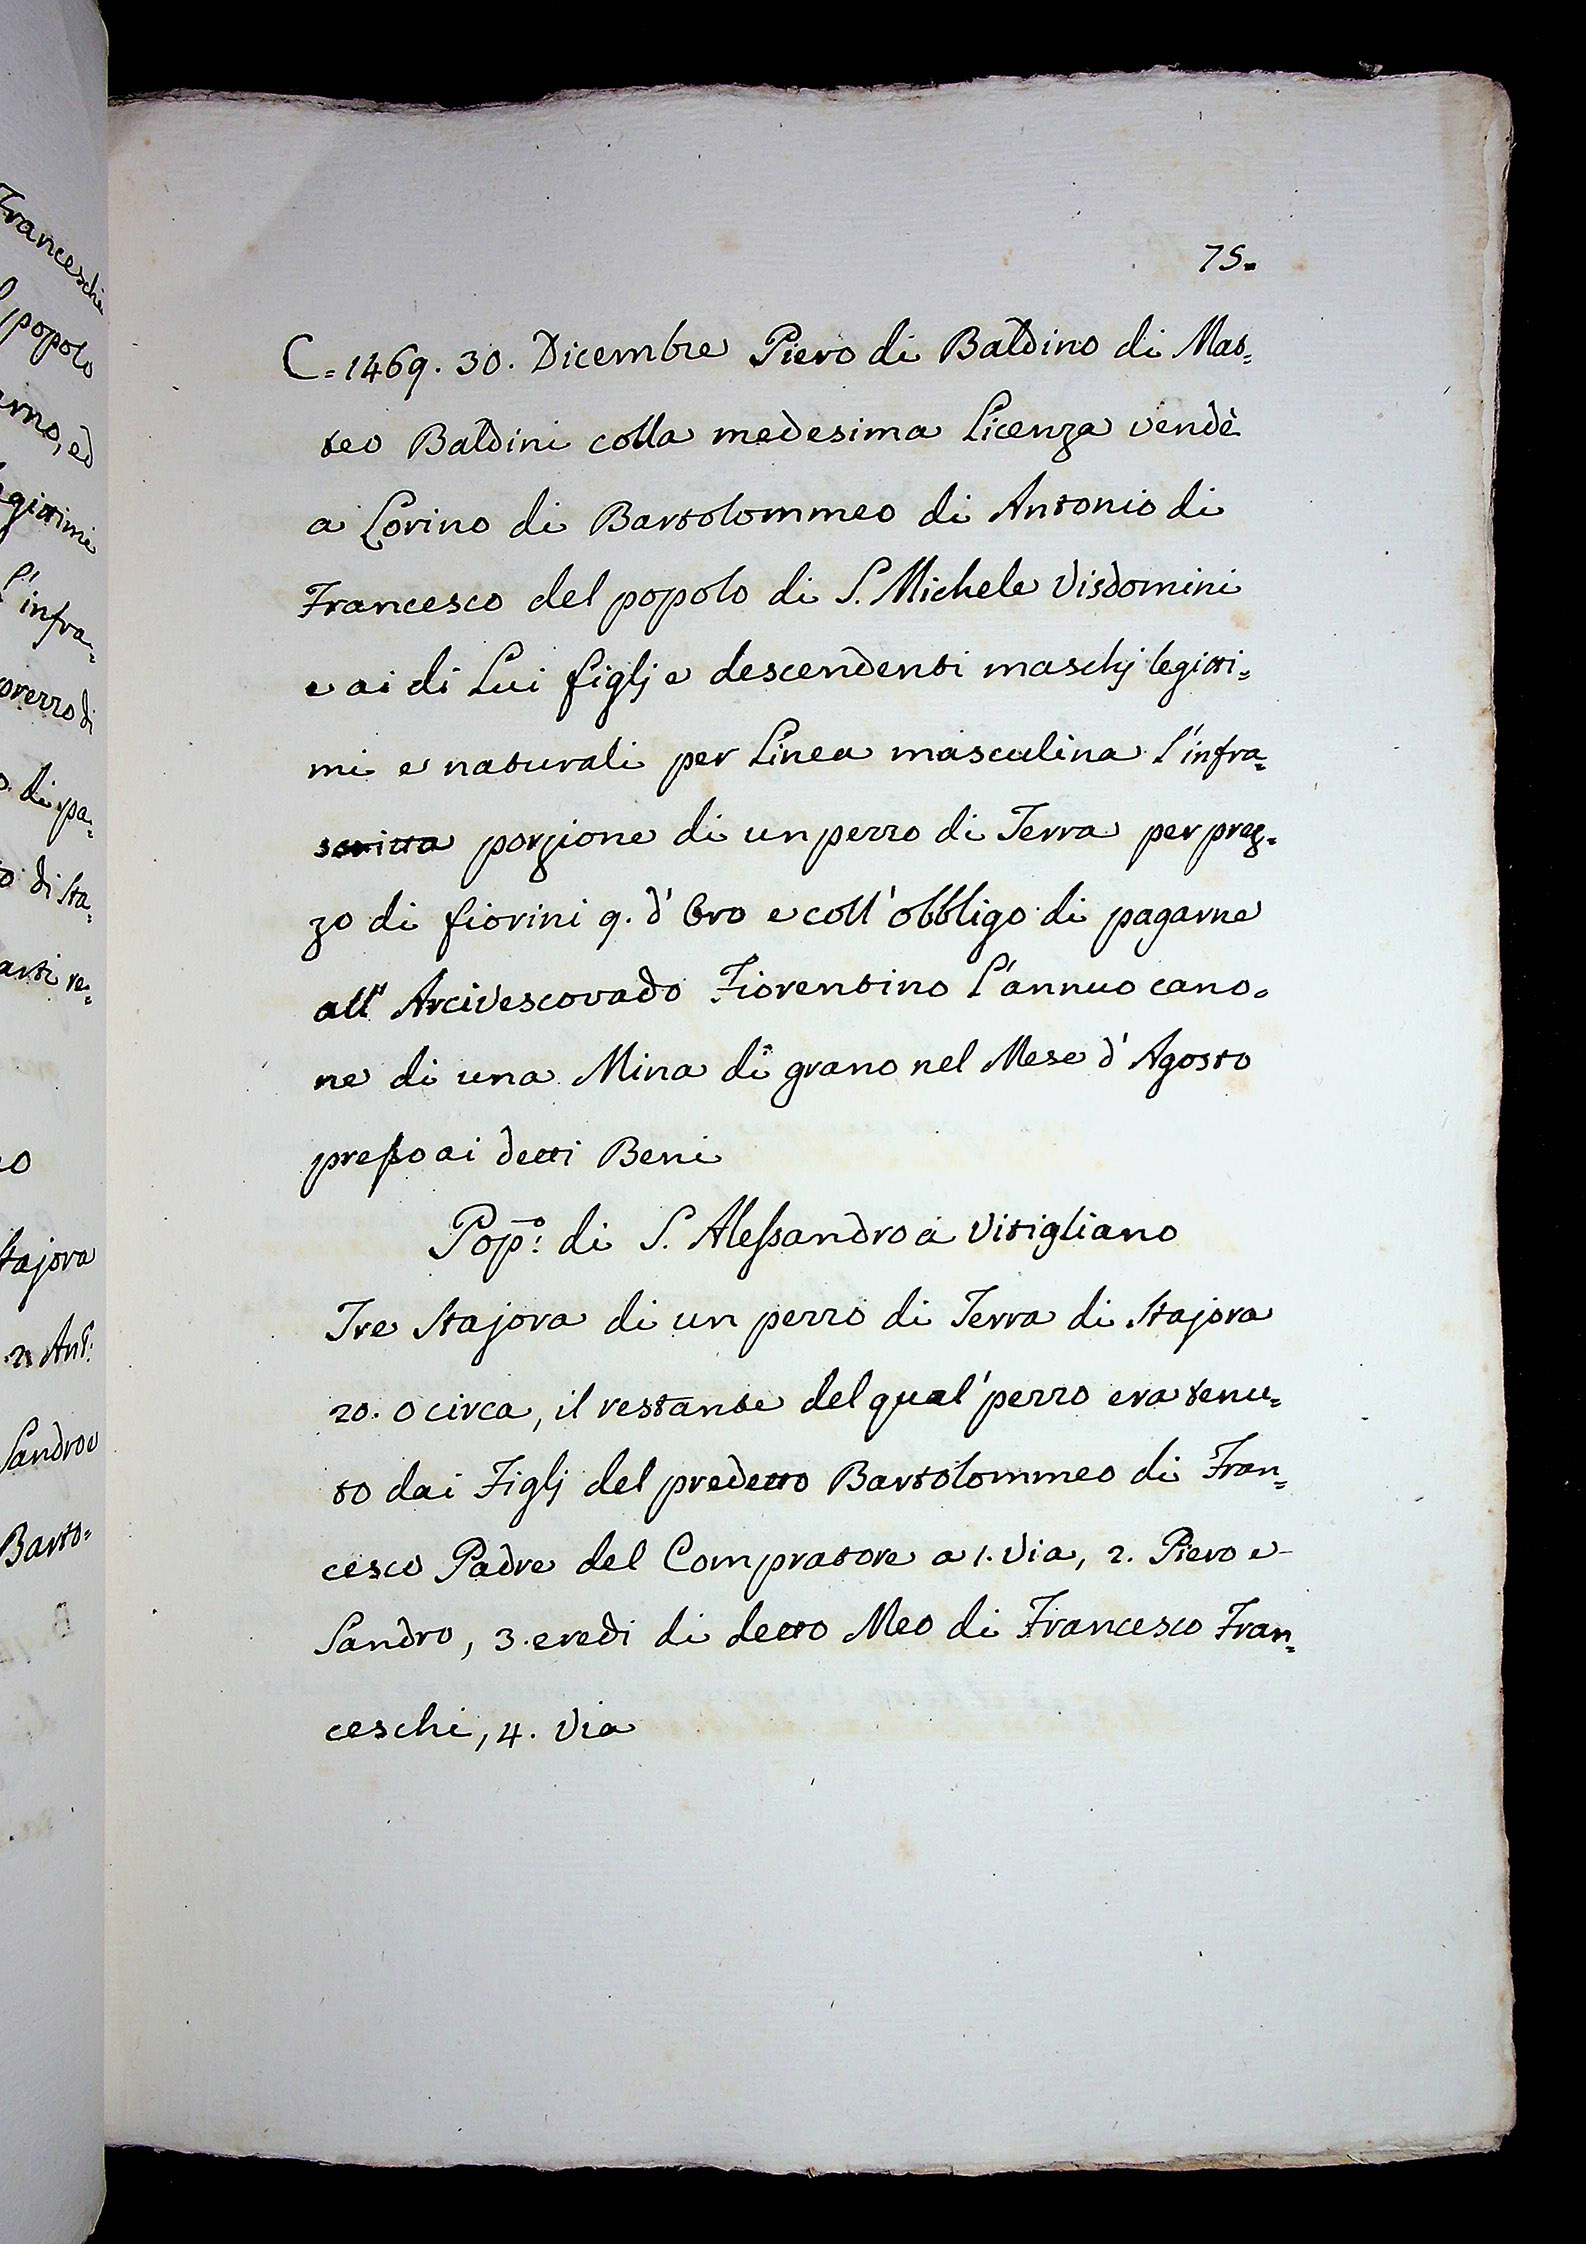 Franceschi
popolo
erno, ed
egittimi
l'infra=
di pa=
o di Sta=
arti re=
Stajora
2. Ant:
Sandro e
Barto=
75.
C=1469. 30. Dicembre Piero di Baldino di Mat=
teo Baldini colla medesima Licenza vendè
a Lorino di Bartolommeo di Antonio di
Francesco del popolo di S. Michele Visdomini
e ai di Lui figlj e descendenti maschj legitti=
mi e naturali per Linea masculina l'infra=
scritta porzione di un pezzo di Terra per prez=
zo di fiorini 9. d'Oro e coll'obbligo di pagarne
all'Arcivescovado Fiorentino l'annuo cano=
ne di una Mina di grano nel Mese d'Agosto
presso ai detti Beni
Pop.º: di S. Alessandro a Vitigliano
Tre Stajora di un pezzo di Terra di Stajora
20. o circa, il restante del qual'pezzo era tenu=
to dai Figlj del predetto Bartolommeo di Fran=
cesco Padre del Compratore a 1. Via, 2. Piero e
Sandro, 3. eredi di detto Meo di Francesco Fran=
ceschi, 4. Via